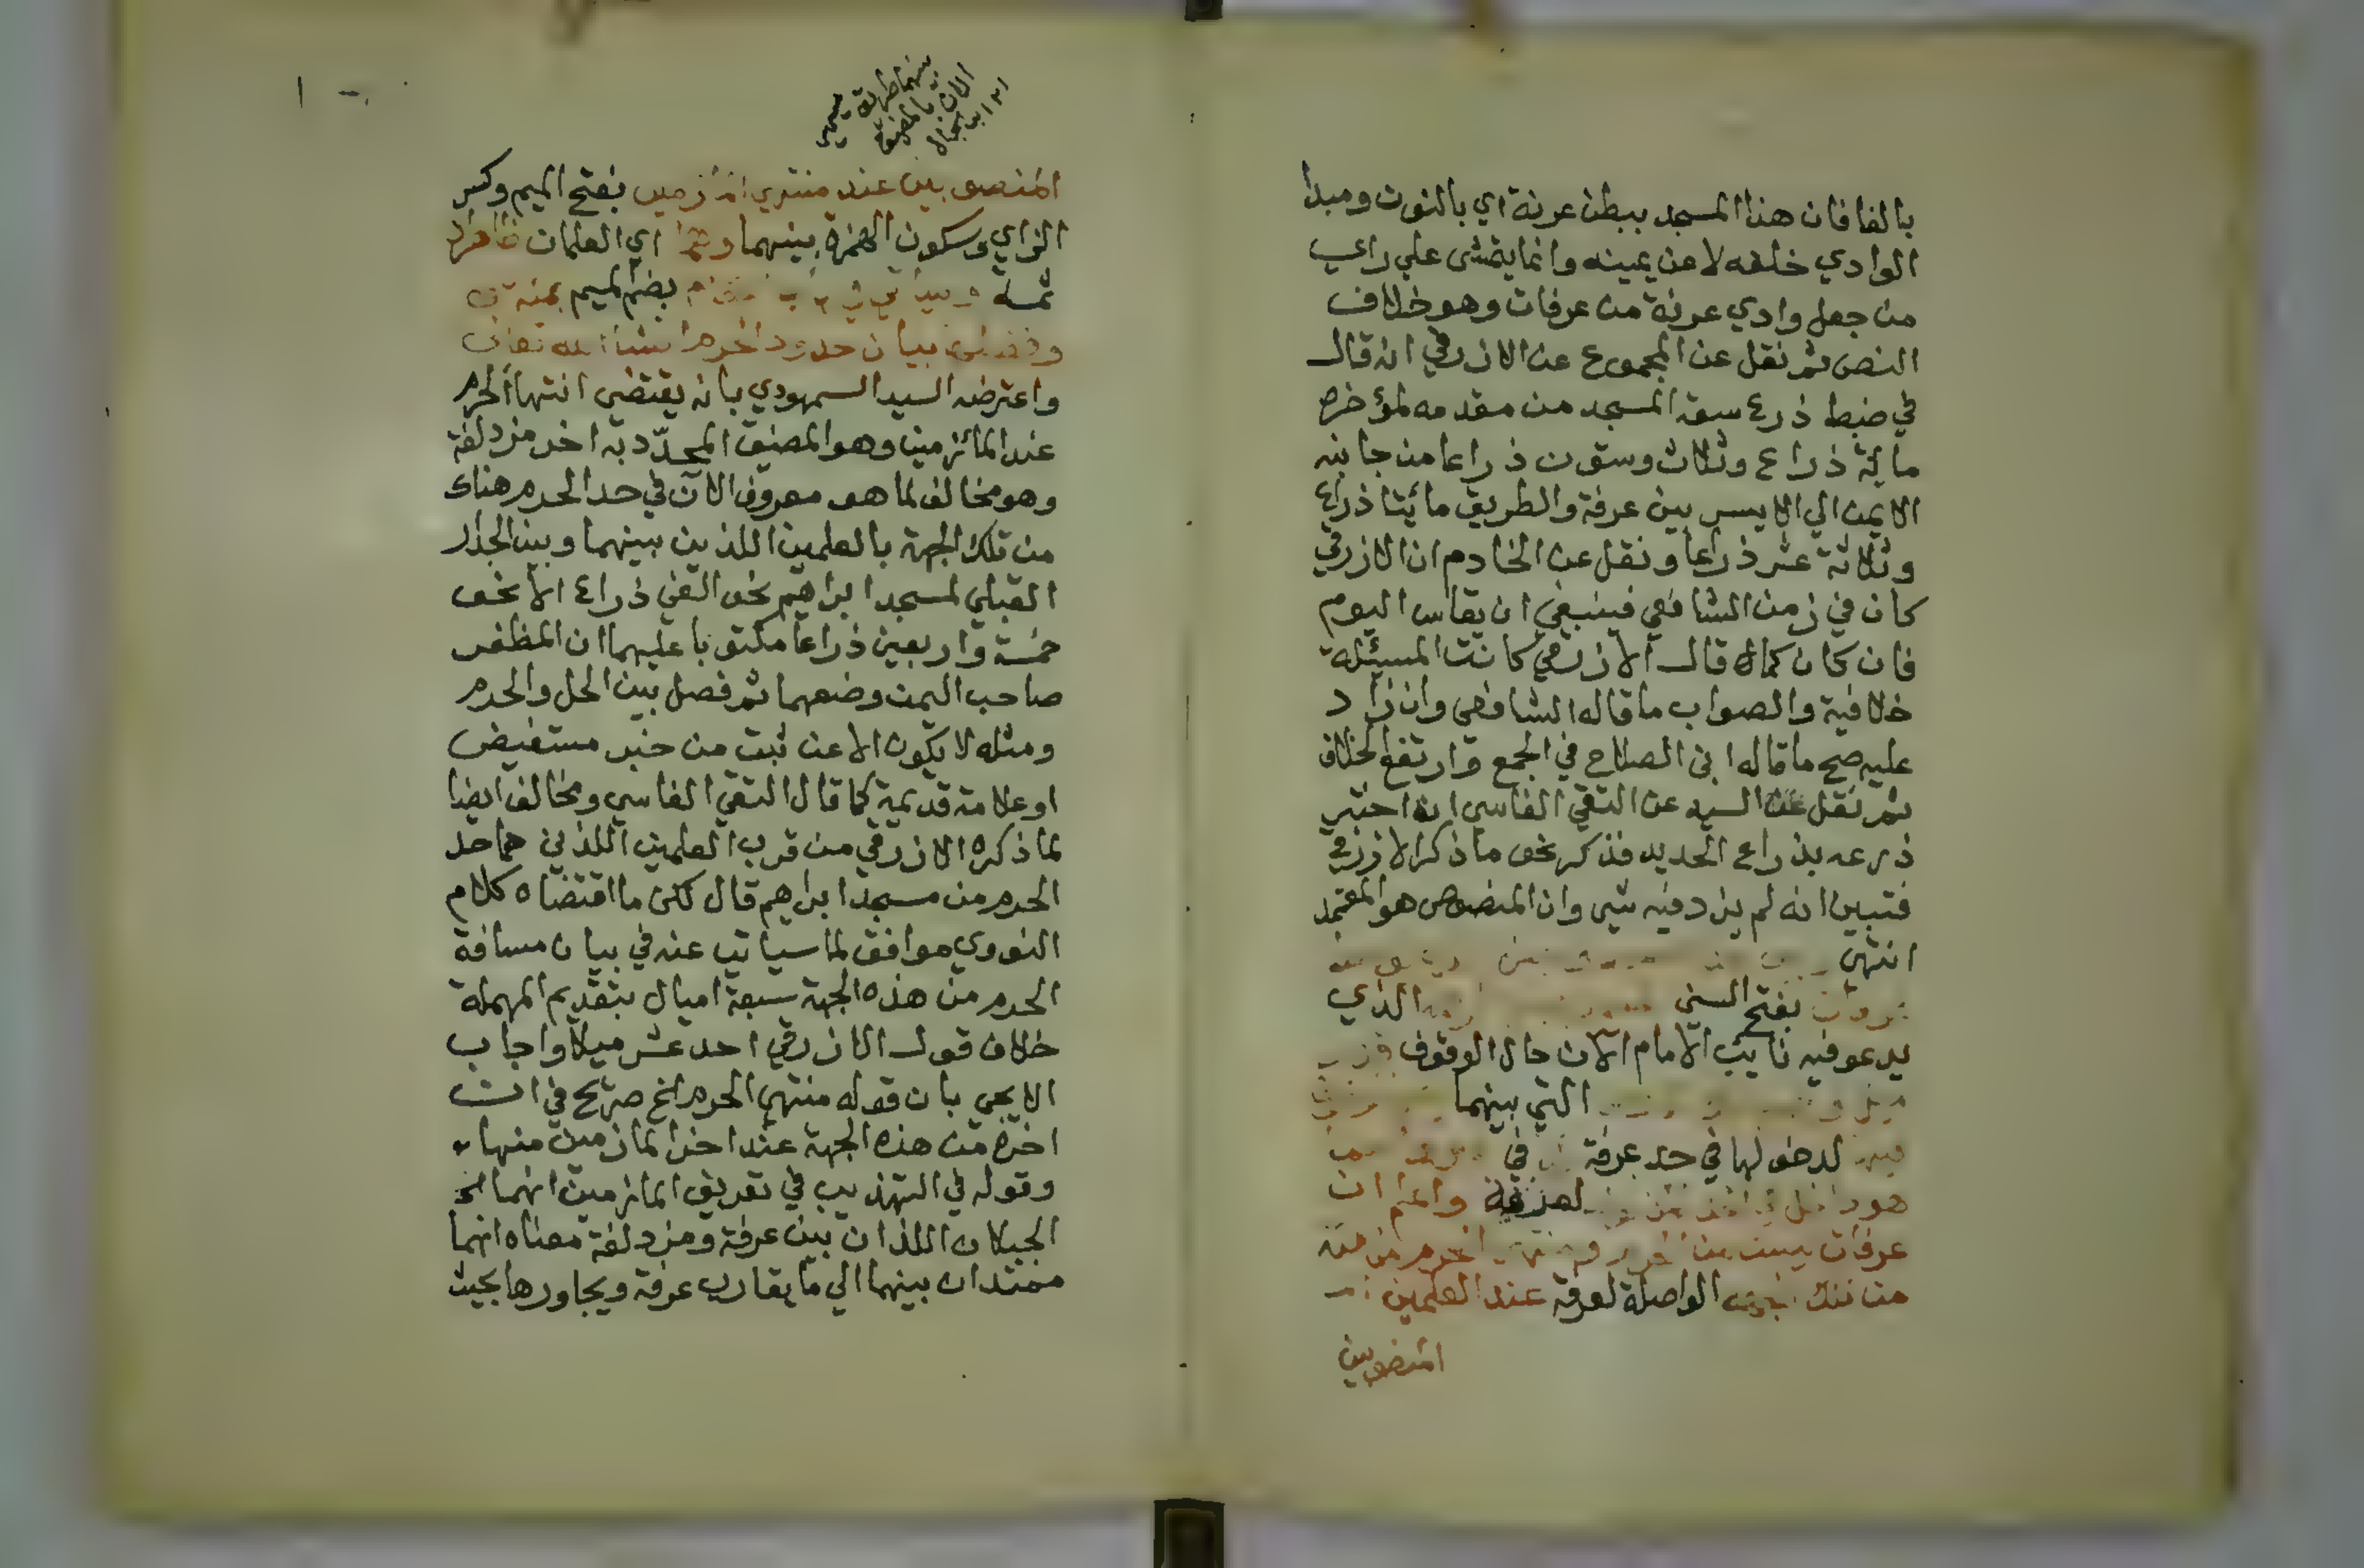 بالفا فان هذا المسجد ببطن عرنة اي بالنون ومبدا
الوادي خلفه لا عن يمينه وانما يتمشى علي راي
من جعل وادي عرنة من عرفات وهو خلاف
النص ثم نقل عن المجموع عن الازرقي انه قال
في ضبط ذرع سعة المسجد من مقدمه لمؤخره
مائة ذراع وثلاث وستون ذراعا من جانبه
الايمن الي الايسر بين عرفة والطريق مائتا ذراع
وثلاثة عشر ذراعا ونقل عن الخادم ان الازرقي
كان في زمن الشافعي فينبغي ان يقاس اليوم
فان كان كما قال الازرقي كانت المسئلة
خلافية والصواب ما قاله الشافعي وان زاد
عليه صح ما قاله ابن الصلاح في الجمع وارتفع الخلاف
ثم نقل عن السيد عن التقي الفاسي انه اختبر
ذرعه بذراع الحديد فذكر نحو ما ذكر الازرقي
فتبين انه لم يزد فيه شي وان المنصوص هو المعتمد
انتهي
بفتح السين الذي
يدعو فيه نايب الامام الان حال الوقوف
التي بينهما
لدخولها في حد عرفة في
هو واعلم ان
عرفات ليست من الحرم الحرم من
من تلك الواصلة لعرفة عند العلمين
المنصوبين
بينهما طريق
الان بالمضيق
المنصوبين عند منتهي المازمين بفتح الميم وكسر
الزاي وسكون الهمزة بينهما وهما اي العلمان ظاهران
ثمة بضم الميم بمنه
بيان حدود الحرم ان شا الله تعالى
واعترضه السيد السمهودي بانه يقتضي انتها الحرم
عند المازمين وهو المضيق المحدد به اخر مزدلفة
وهو مخالف لما هو معروف الآن في حد الحرم هناك
من تلك الجهة بالعلمين اللذين بينهما وبين الجدار
القبلي لمسجد ابراهيم نحو الفي ذراع الا نحو
خمسة واربعين ذراعا مكتوبا عليهما ان المظفر
صاحب اليمن وضعهما ثم فصل بين الحل والحرم
ومثله لا يكون الا عن ثبت من خبر مستفيض
او علامة قديمة كما قال التقي الفاسي ومخالف ايضا
لما ذكره الازرقي من قرب العلمين اللذين هما حد
الحرم من مسجد ابراهيم قال لكن ما اقتضاه كلام
النووي موافق لما سياتي عنه في بيان مسافة
الحرم من هذه الجهة سبعة اميال بتقديم المهملة
خلاف قول الازرقي احد عشر ميلا واجاب
الايجي بان قوله منتهي الحرم الخ صريح في ان
اخره من هذه الجهة عند اخر المازمين منها
وقوله في التهذيب في تعريف المازمين انهما
الجبلان اللذان بين عرفة ومزدلفة معناه انهما
ممتدان بينهما الي ما يقارب عرفة ويجاورها بحيث